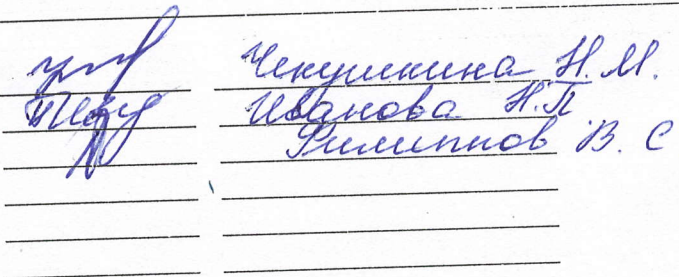 Чекушкина Н.М.
Иванова Н.П
Филиппов В. С